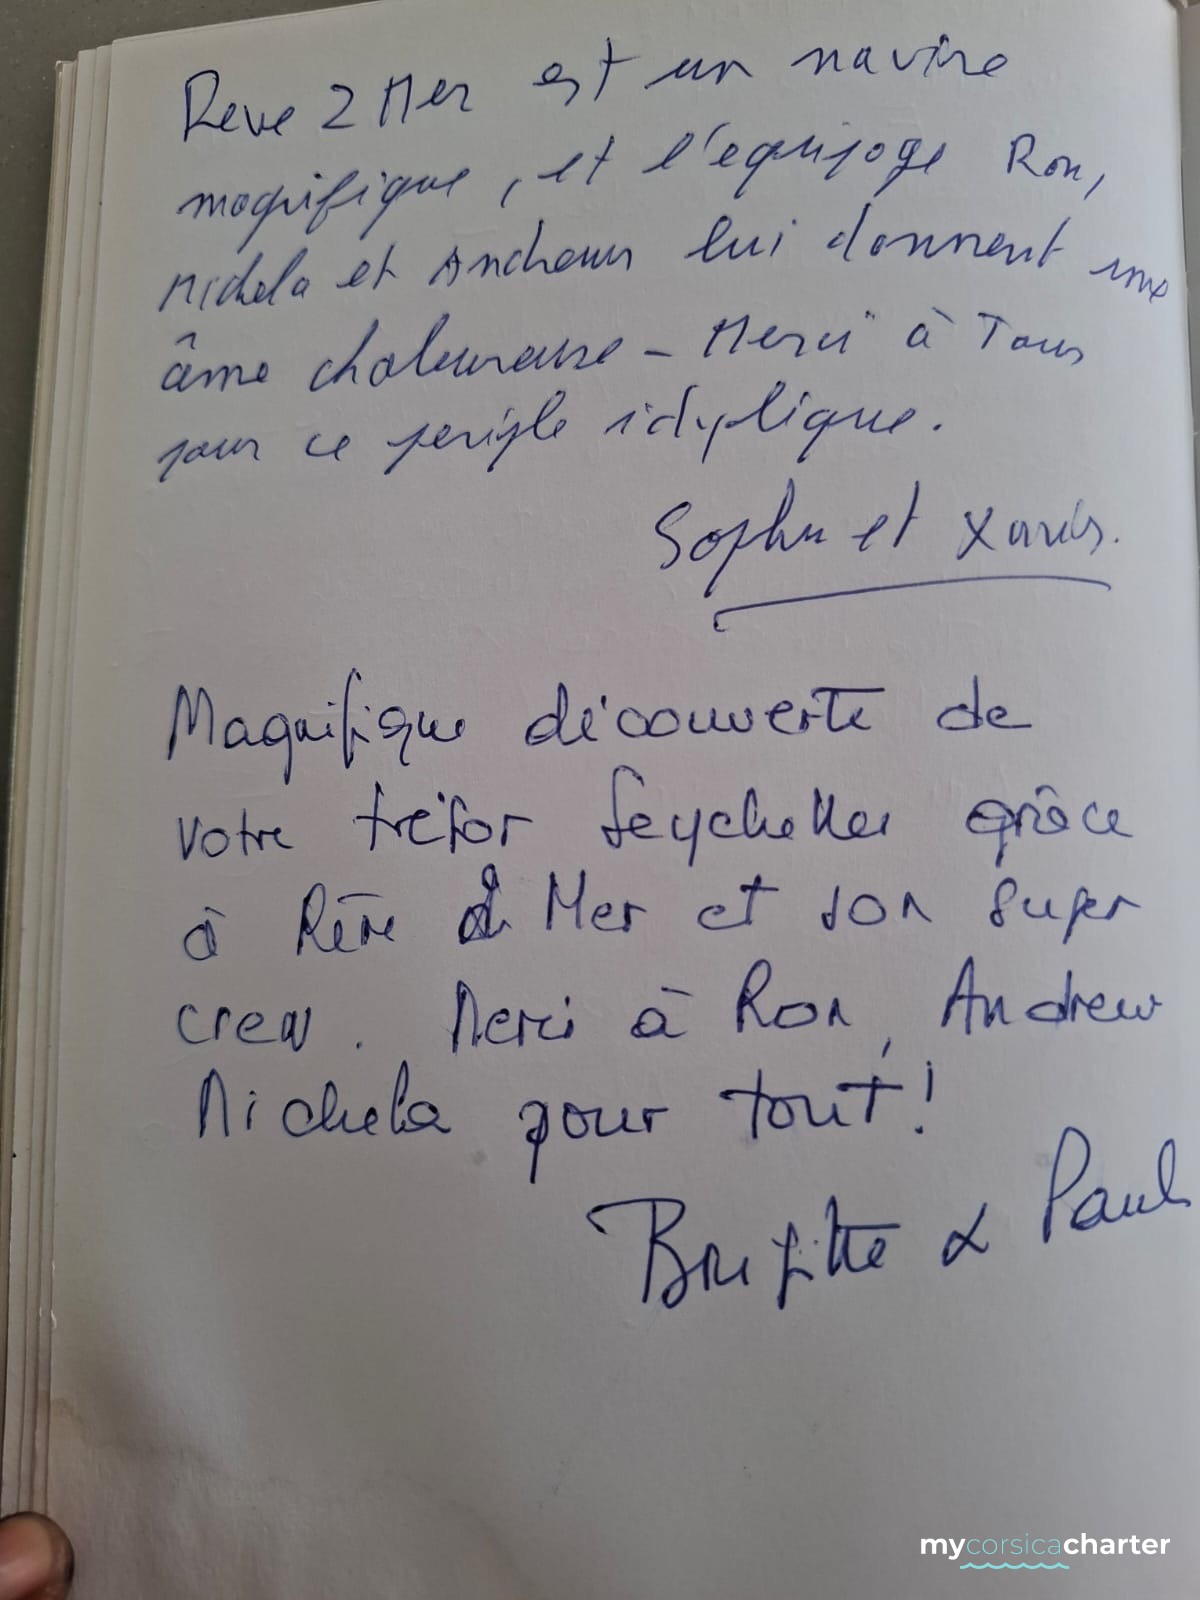 Reve 2 Mer est un navire
magnifique, et l'equipage Ron,
Michela et Andrew lui donnent une
âme chaleureuse - Merci à Tous
pour ce periple idylique.
Sophie et Xavier.
Magnifique découverte de
votre trésor Seychelles grâce
à Rêve 2 Mer et son super
crew. Merci à Ron, Andrew
Michela pour tout!
Brigitte & Paul
mycorsicacharter